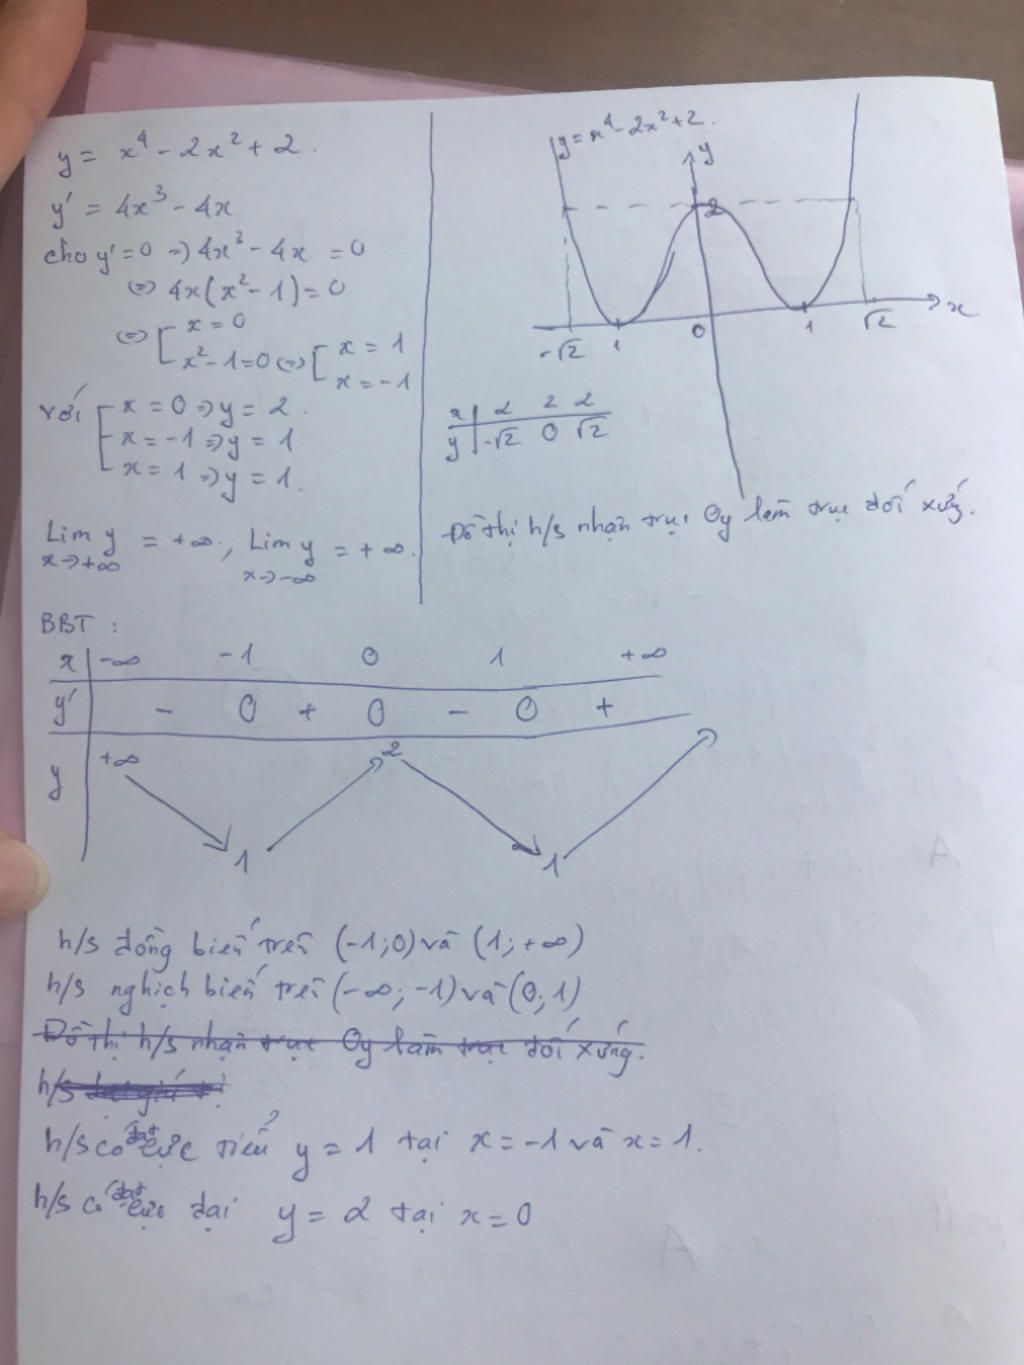 y = x⁴ - 2x² + 2.
y' = 4x³ - 4x
cho y' = 0 => 4x³ - 4x = 0
<=> 4x(x² - 1) = 0
<=> [ x = 0
x² - 1 = 0 <=> [ x = 1
x = -1
với [ x = 0 => y = 2.
x = -1 => y = 1
x = 1 => y = 1.
Lim y = +∞, Lim y = +∞.
x->+∞ x->-∞
y = x⁴ - 2x² + 2.
y
2
-√2 1 0 1 √2 x
x | 2 2 2
y | -√2 0 √2
Đồ thị h/s nhận trục Oy làm trục đối xứng.
BBT :
x | -∞ -1 0 1 +∞
y' | - 0 + 0 - 0 +
y | +∞ 2
1 1
h/s đồng biến trên (-1;0) và (1;+∞)
h/s nghịch biến trên (-∞;-1) và (0;1)
Đồ thị h/s nhận trục Oy làm trục đối xứng.
h/s
h/s đạt cực tiểu y = 1 tại x = -1 và x = 1.
h/s đạt cực đại y = 2 tại x = 0